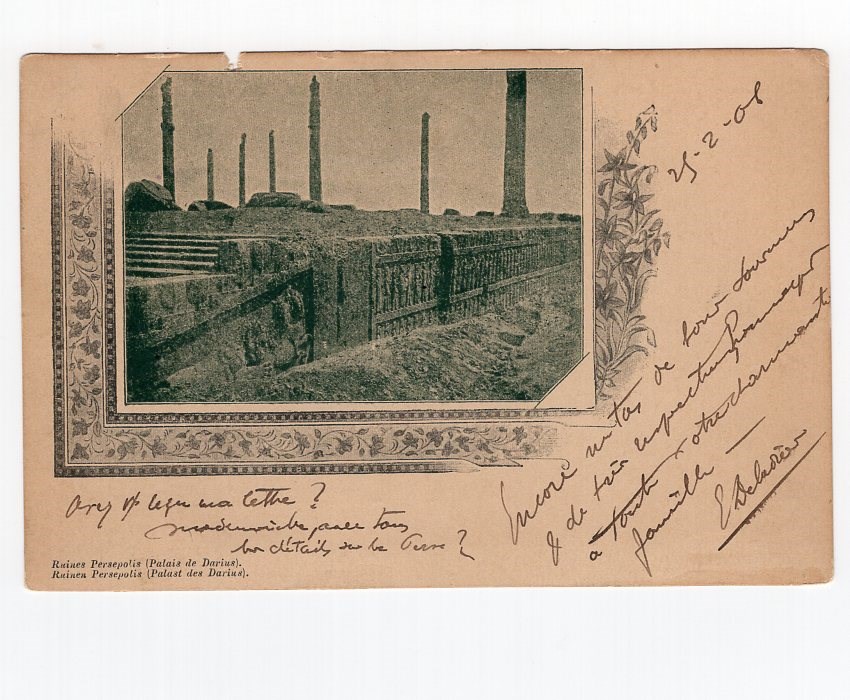 25-2-08
Encore un tas de bons souvenirs
& de très respectueux hommages
à toute votre charmante
famille —
Avez vs reçu ma lettre ?
avec tous
les détails sur la Perse ?
Ruines Persepolis (Palais de Darius).
Ruinen Persepolis (Palast des Darius).